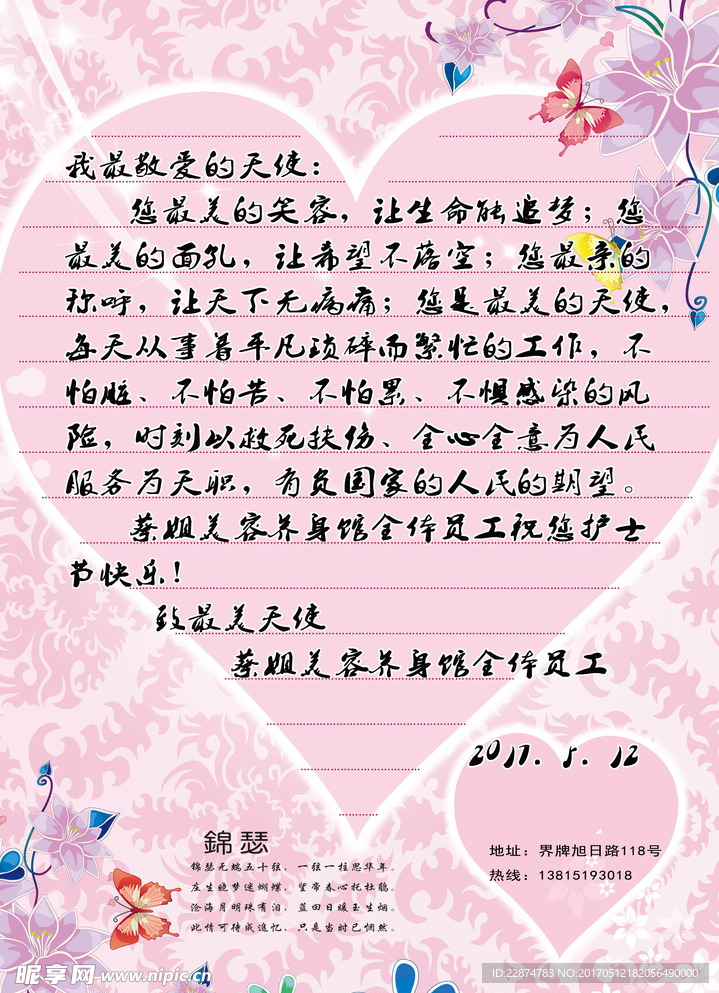 我最敬爱的天使：
您最美的笑容，让生命能追梦；您
最美的面孔，让希望不落空；您最亲的
称呼，让天下无病痛；您是最美的天使，
每天从事着平凡琐碎而繁忙的工作，不
怕脏、不怕苦、不怕累、不惧感染的风
险，时刻以救死扶伤、全心全意为人民
服务为天职，有负国家的人民的期望。
蔡姐美容养身馆全体员工祝您护士
节快乐！
致最美天使
蔡姐美容养身馆全体员工
2017.5.12
錦瑟
锦瑟无端五十弦，一弦一柱思华年。
庄生晓梦迷蝴蝶，望帝春心托杜鹃。
沧海月明珠有泪，蓝田日暖玉生烟。
此情可待成追忆，只是当时已惘然。
地址：界牌旭日路118号
热线：13815193018
昵享网 www.nipic.cn
ID:22874783 NO:20170512182056490000